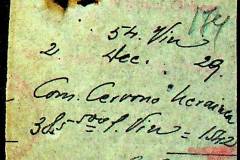 174
54. Vin
2 Dec. 29.
Com. Cervono Ucraina
385-500 f. Vin = 1542